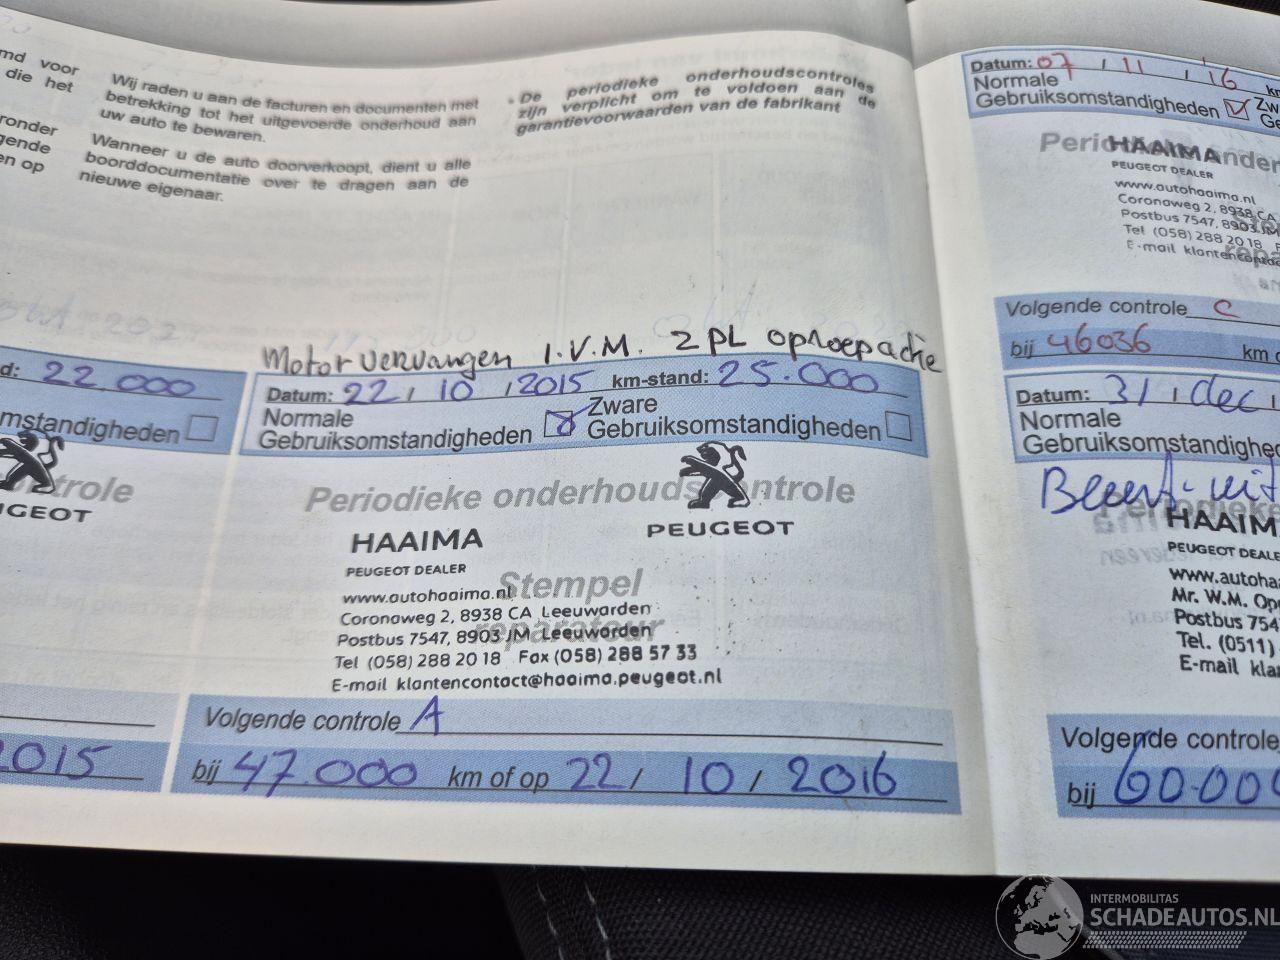 md voor
die het
ronder
gende
en op
Wij raden u aan de facturen en documenten met
betrekking tot het uitgevoerde onderhoud aan
uw auto te bewaren.
Wanneer u de auto doorverkoopt, dient u alle
boorddocumentatie over te dragen aan de
nieuwe eigenaar.
- De periodieke onderhoudscontroles
zijn verplicht om te voldoen aan de
garantievoorwaarden van de fabrikant
d: 22.000
mstandigheden
ntrole
UGEOT
2015
Motor vervangen I.V.M. 2 PL oproepactie
Datum: 22 / 10 / 2015 km-stand: 25.000
Normale
Gebruiksomstandigheden
Zware
Gebruiksomstandigheden
Periodieke onderhoudscontrole
PEUGEOT
HAAIMA
PEUGEOT DEALER
Stempel
reparateur
www.autohaaima.nl
Coronaweg 2, 8938 CA Leeuwarden
Postbus 7547, 8903 JM Leeuwarden
Tel (058) 288 20 18 Fax (058) 288 57 33
E-mail klantencontact@haaima.peugeot.nl
Volgende controle A
bij 47.000 km of op 22 / 10 / 2016
Datum: 07 / 11 / '16 km
Normale
Gebruiksomstandigheden
Zwa
Ge
HAAIMA
PEUGEOT DEALER
www.autohaaima.nl
Coronaweg 2, 8938 CA
Postbus 7547, 8903 JM
Tel (058) 288 20 18
E-mail klantencontac
Volgende controle C
bij 46036 km o
Datum: 31 / Dec /
Normale
Gebruiksomstandighe
HAAIM
PEUGEOT DEALE
www.autoha
Mr. W.M. Op
Postbus 754
Tel. (0511)
E-mail kla
Volgende controle
bij 60.000
INTERMOBILITAS
SCHADEAUTOS.NL